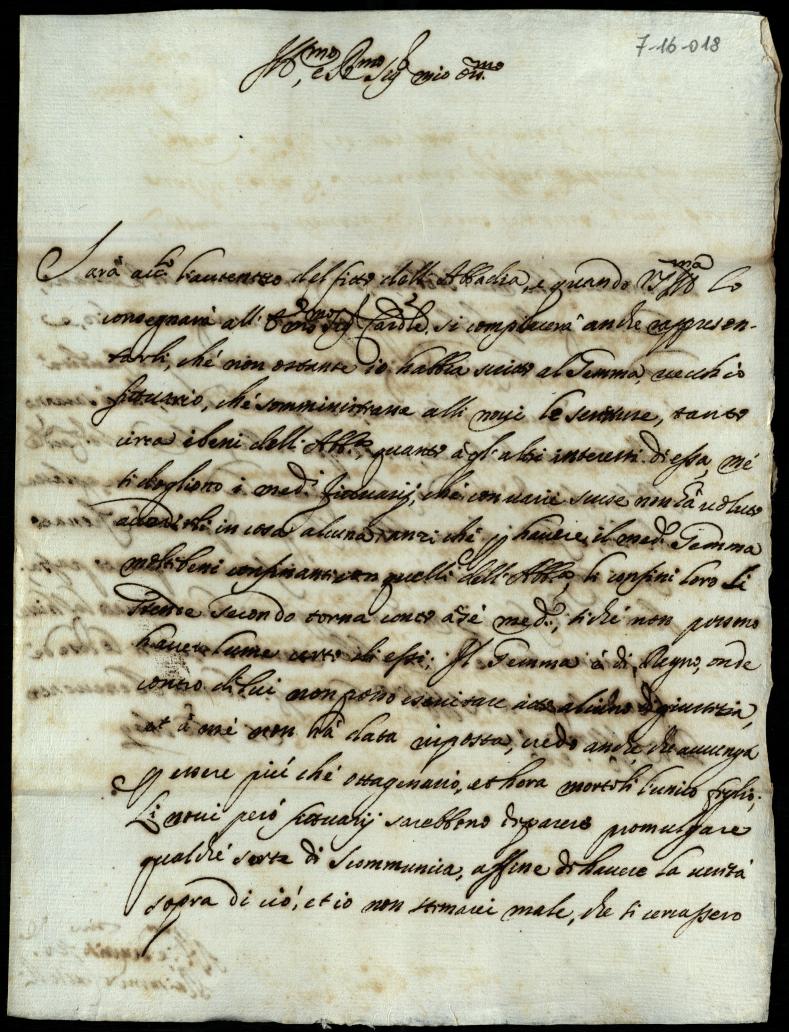 7-16-018
Ill.mo e R.mo Sig.r mio
Sarà l'autentico del fitto dell'Abbadia, e quando V.S. Ill.ma lo
consegnarà all' Sig. Card.le, si complacerà anche rappresen-
tarli, ché non ostante io habbia scritto al Gemma, vecchio
fittuario, ché somministrasse alli novi le scritture, tanto
circa i beni dell'Abb.a quanto à gl'altri interessi di essa, mé
si dogliono i med.i fittuarij, ché con varie scuse non hà voluto
in cosa alcuna, anzi ché p havere il med.o Gemma
molti beni confinanti con quelli dell'Abb.a, li confini loro li
secondo torna conto à sé med.o, si ché non possono
havere lume certo di essi; Il Gemma é di Regno, onde
contro di lui non posso esercitare atto alcuno di giustizia,
et à mé non hà data risposta, credo anche che avvenga
p essere piú ché ottagenario, et hora mortoli l'unico figlio;
Li novi peró fittuarij sarebbono di parere promulgare
qualché sorte di Scommunica, affine di havere la verità
sopra di ció, et io non stimarei male, che si cercassero